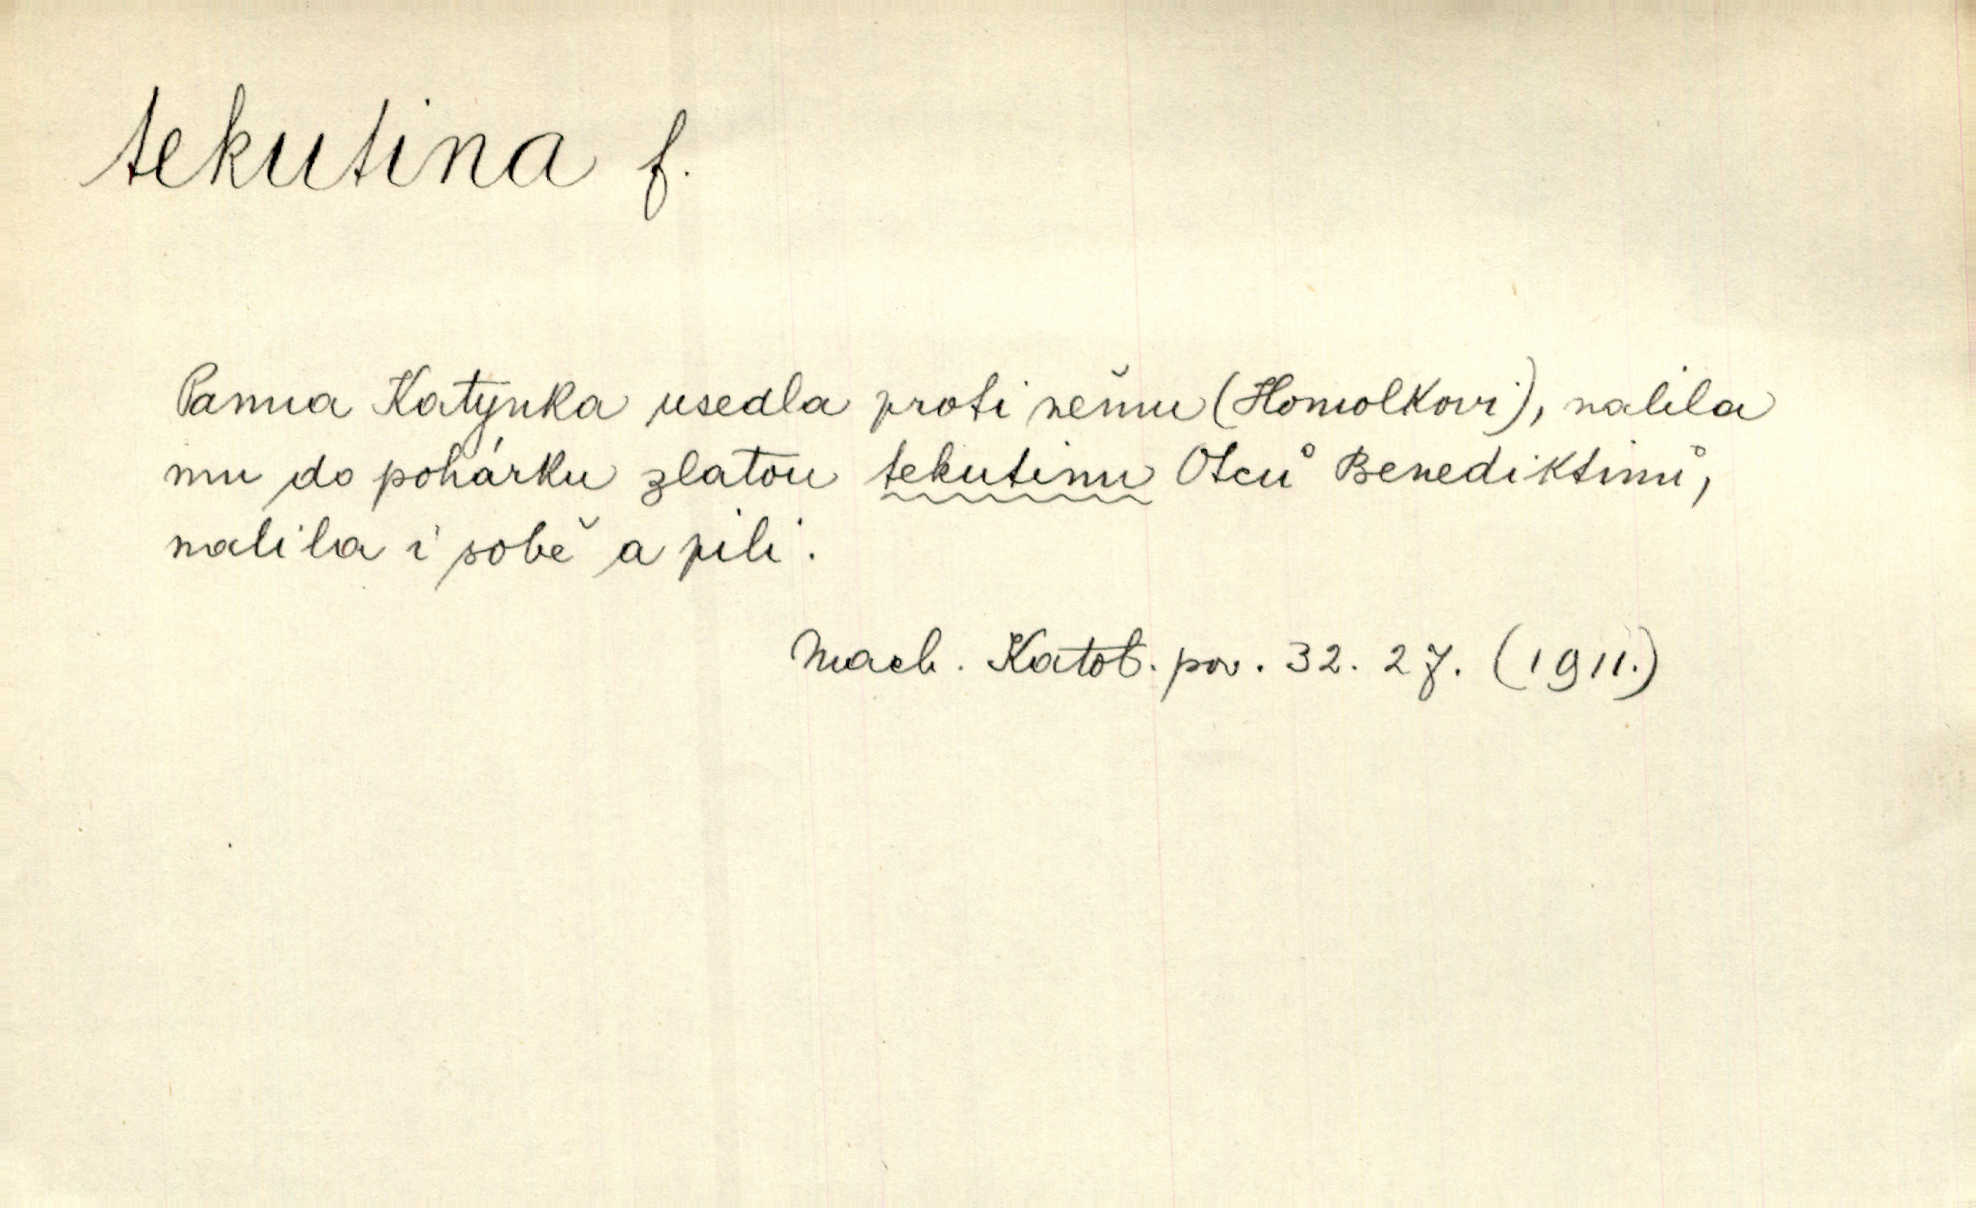 tekutina f.
Panna Katynka usedla proti němu (Homolkovi), nalila
mu do pohárku zlatou tekutinu Otců Benediktinů,
nalila i sobě a pili.
Mach. Katob. pov. 32. 27. (1911.)